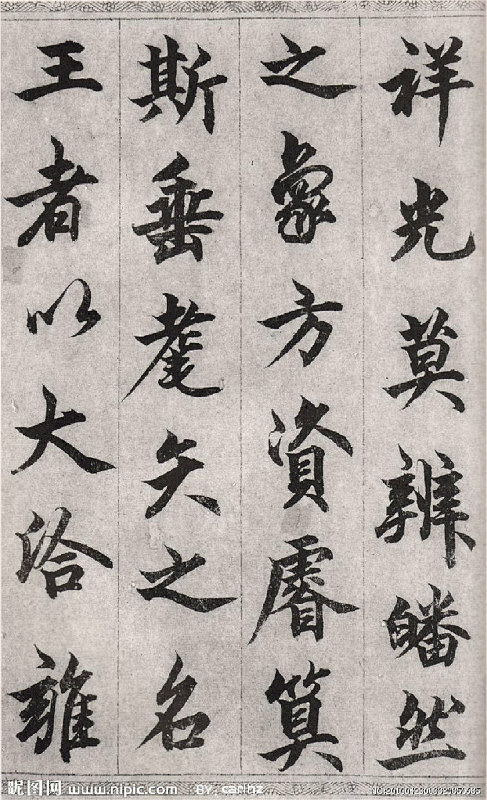 祥光莫辨皤然
之象方資睿算
斯垂耄矣之名
王者以大洽雍
昵图网 www.nipic.com BY: carlhz